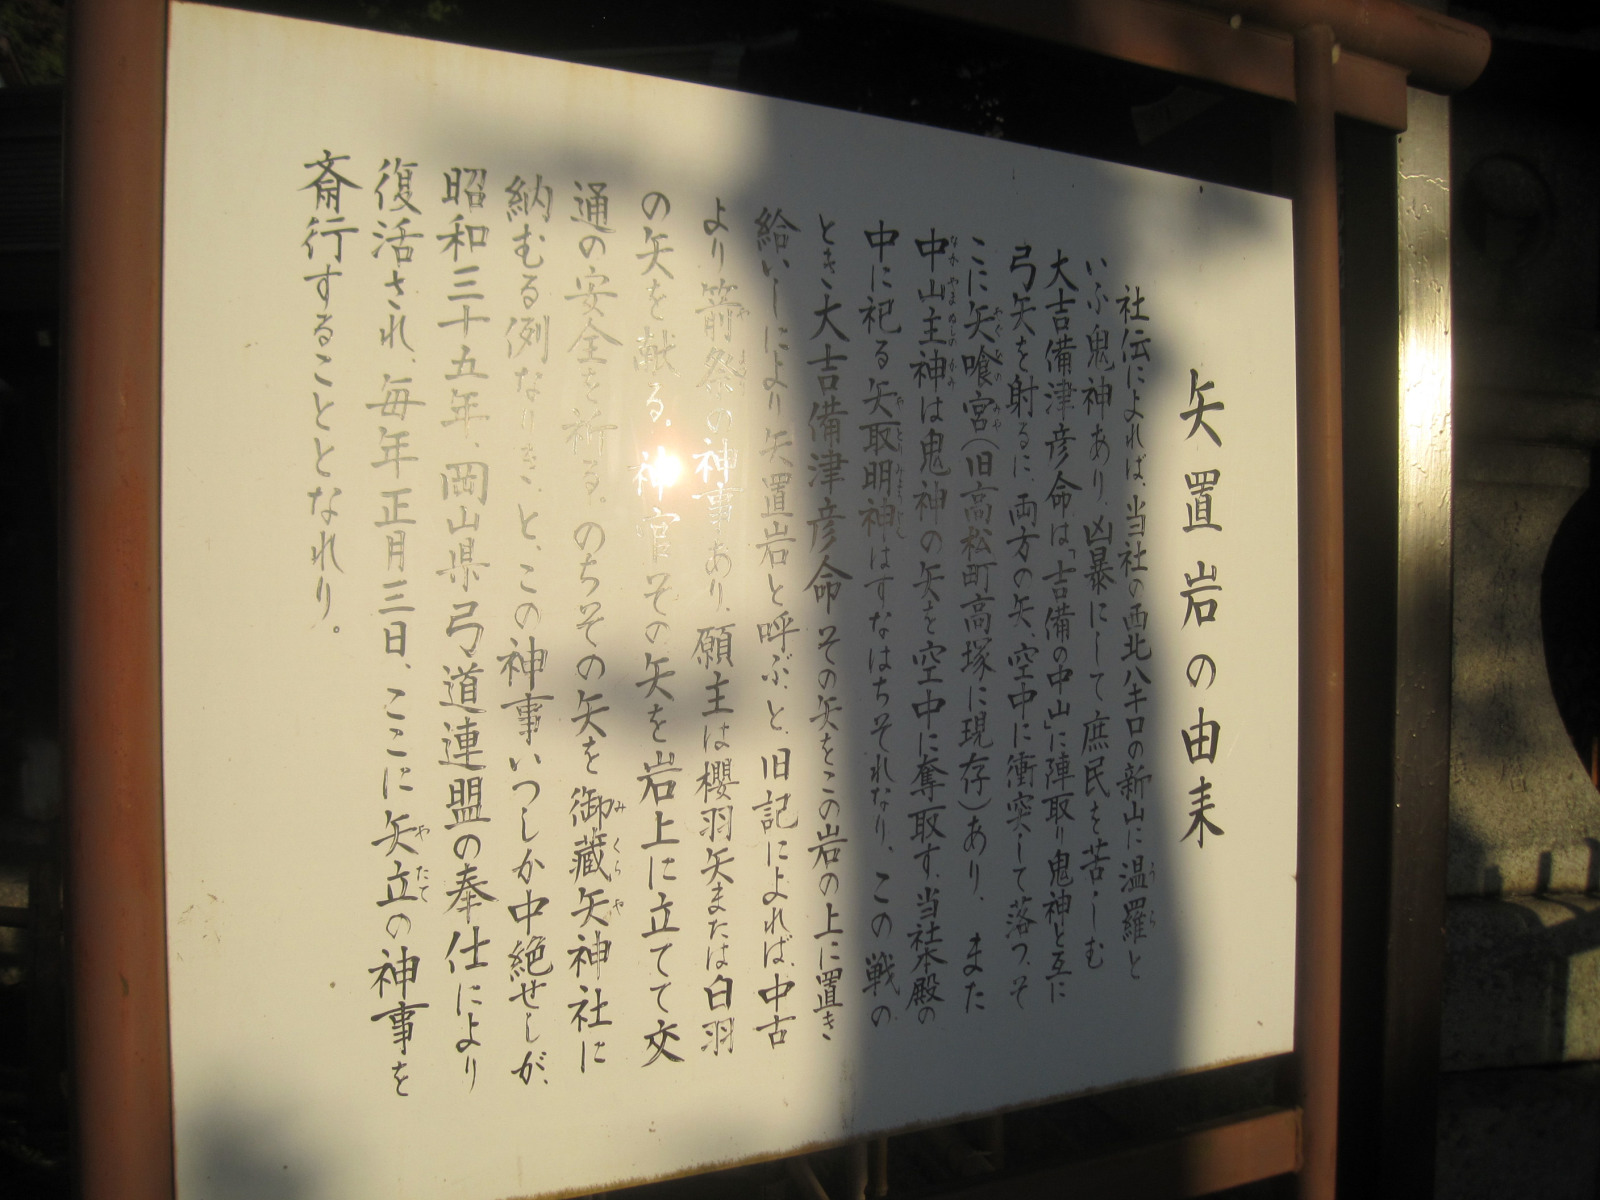 矢置岩の由来
社伝によれば、当社の西北八キロの新山に温羅と
いふ鬼神あり、凶暴にして庶民を苦しむ
大吉備津彦命は「吉備の中山」に陣取り鬼神と互に
弓矢を射るに、両方の矢、空中に衝突して落つ、そ
こに矢喰宮(旧高松町高塚に現存)あり、また
中山主神は鬼神の矢を空中に奪取す、当社本殿の
中に祀る矢取明神はすなはちそれなり、この戦の
とき大吉備津彦命その矢をこの岩の上に置き
給いしにより矢置岩と呼ぶ、と、旧記によれば、中古
より箭祭の神事あり、願主は櫻羽矢または白羽
の矢を献る、神官その矢を岩上に立てて交
通の安全を祈る。のちその矢を御蔵矢神社に
納むる例なりき、と、この神事いつしか中絶せしが、
昭和三十五年、岡山県弓道連盟の奉仕により
復活され、毎年正月三日、ここに矢立の神事を
斎行することとなれり。